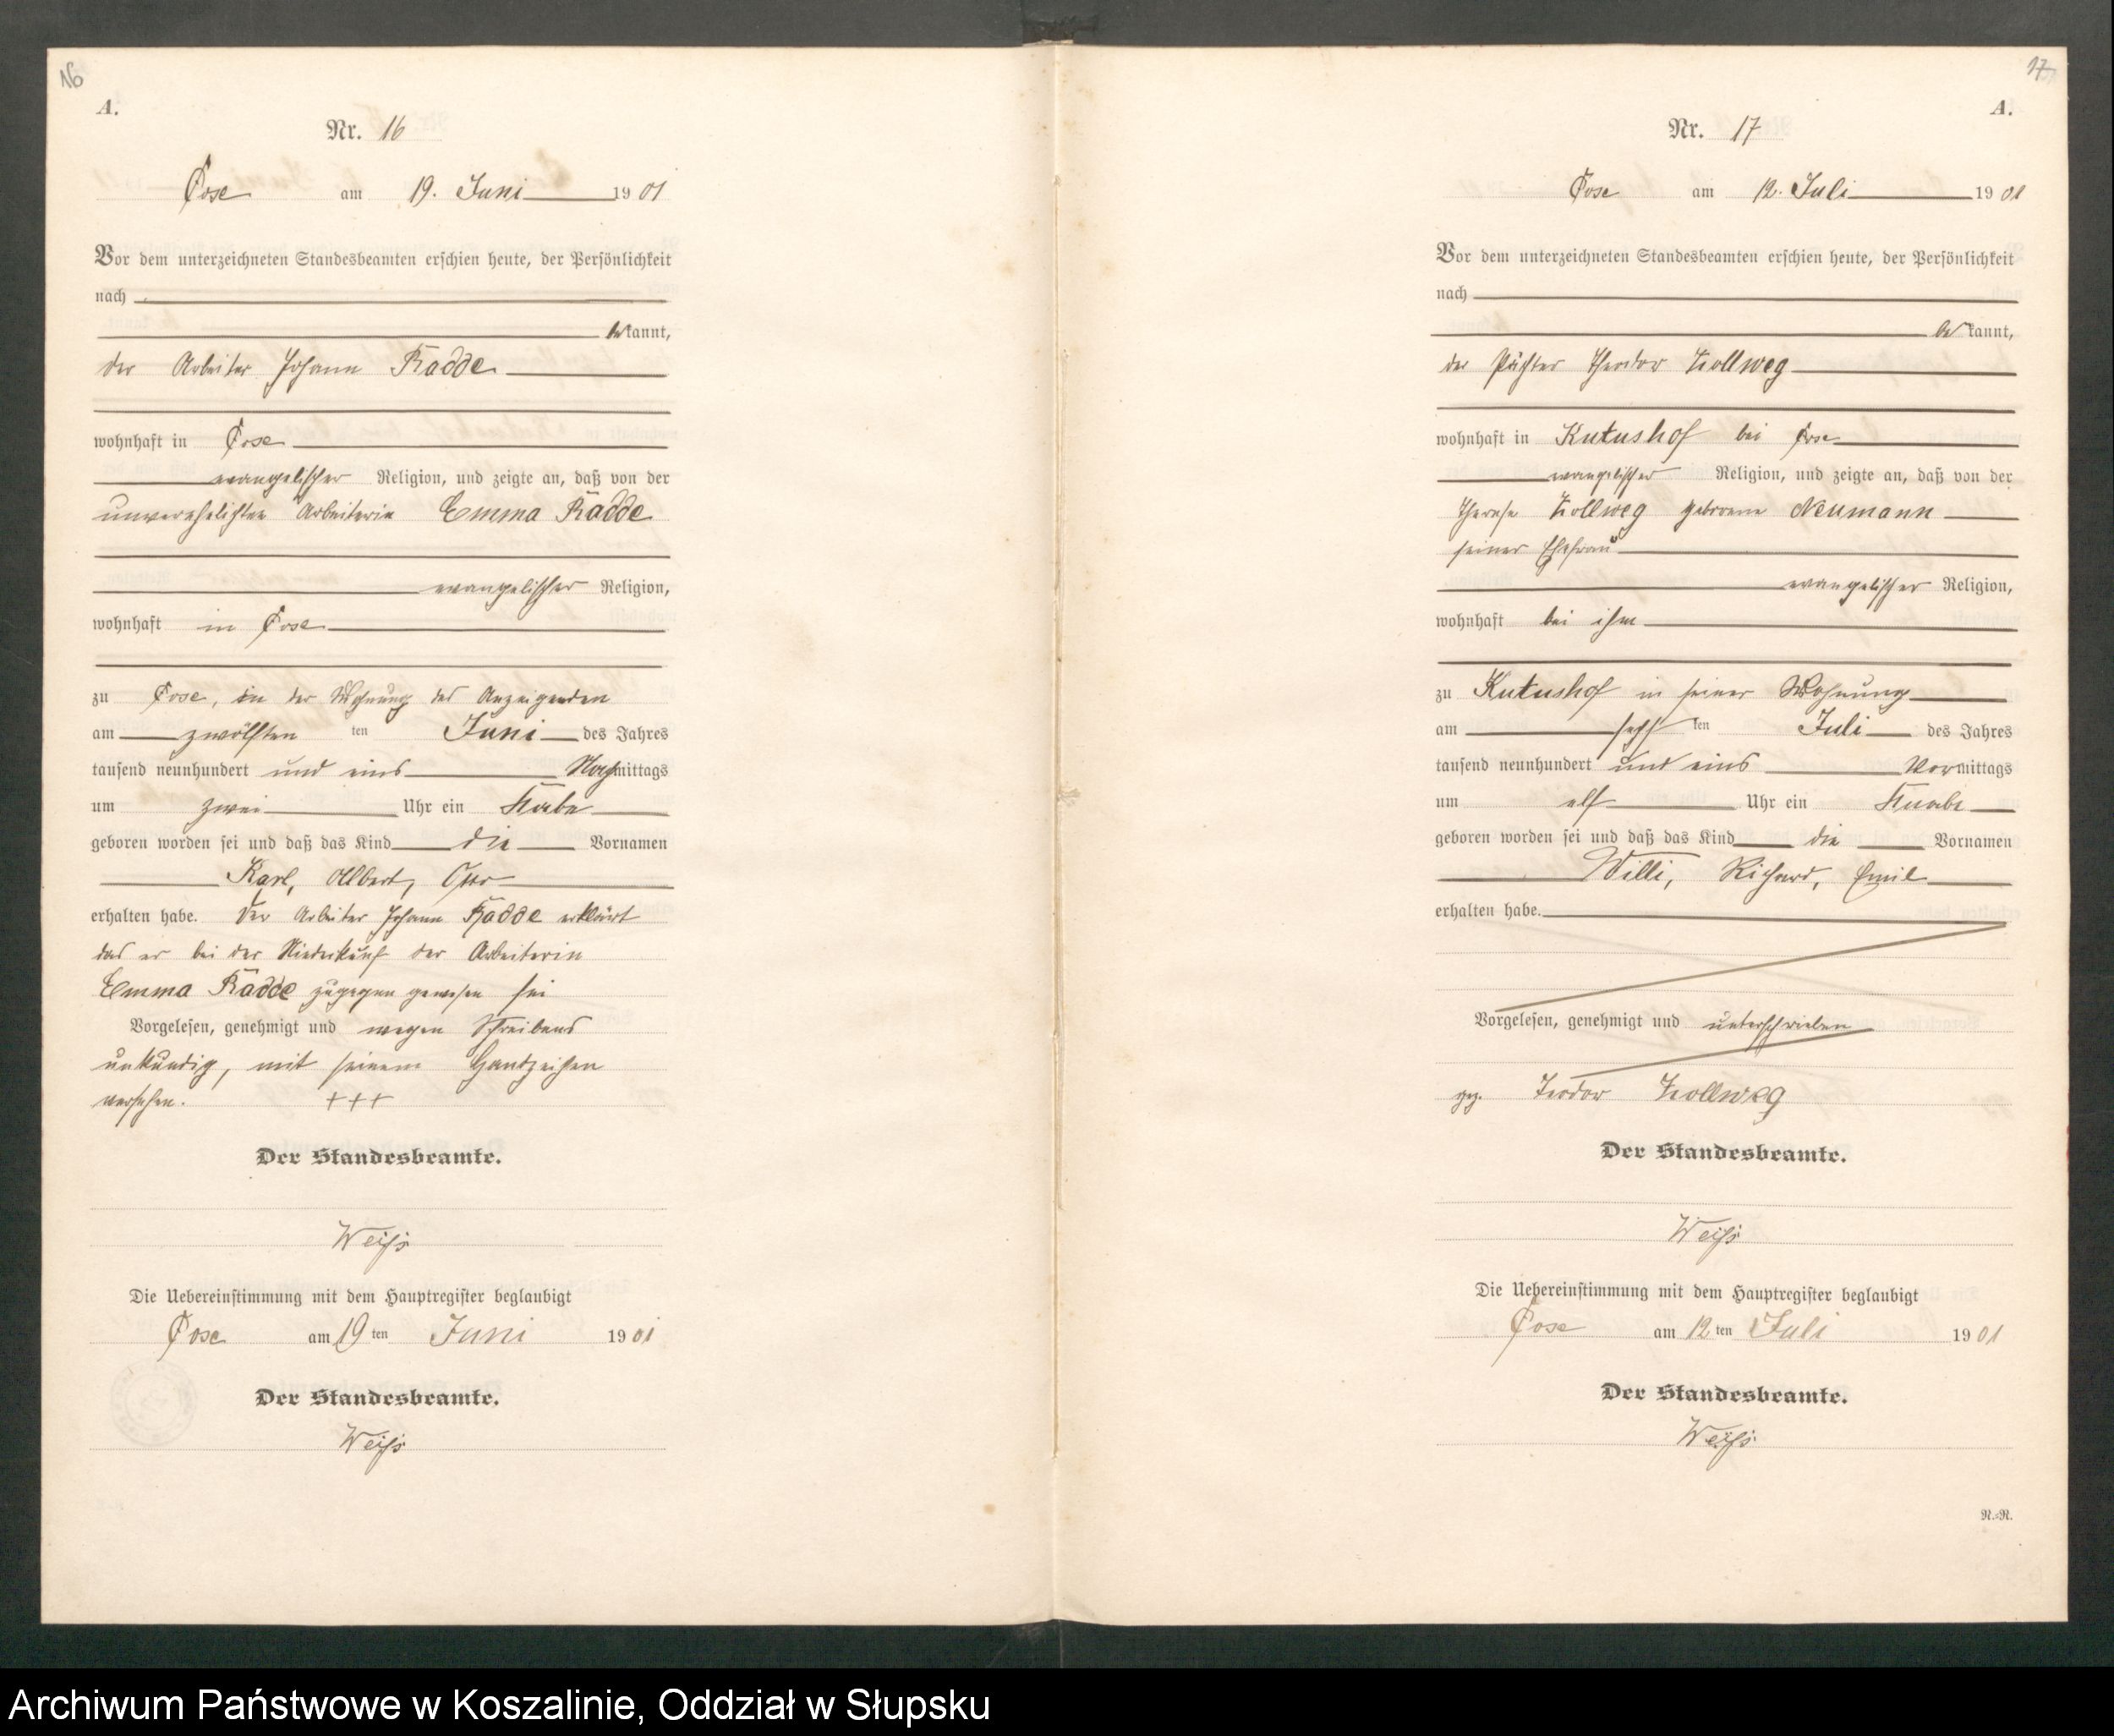 16
A.
Nr. 16
Cose am 19. Juni 1901
Vor dem unterzeichneten Standesbeamten erschien heute, der Persönlichkeit
nach
bekannt,
der Arbeiter Johann Radde
wohnhaft in Cose
evangelischer Religion, und zeigte an, daß von der
unverehelichten Arbeiterin Emma Radde
evangelischer Religion,
wohnhaft in Cose
zu Cose, in der Wohnung des Anzeigenden
am zwölften ten Juni des Jahres
tausend neunhundert und eins Nachmittags
um zwei Uhr ein Knabe
geboren worden sei und daß das Kind die Vornamen
Karl, Albert, Otto
erhalten habe. Der Arbeiter Johann Radde erklärt
das er bei der Niederkunf der Arbeiterin
Emma Radde zugegen gewesen sei
Vorgelesen, genehmigt und wegen Schreibens
unkundig, mit seinem Handzeichen
versehen. +++
Der Standesbeamte.
Weiß
Die Uebereinstimmung mit dem Hauptregister beglaubigt
Cose am 19 ten Juni 1901
Der Standesbeamte.
Weiß
17
A.
Nr. 17
Cose am 12. Juli 1901
Vor dem unterzeichneten Standesbeamten erschien heute, der Persönlichkeit
nach
bekannt,
der Pächter Theodor Zollweg
wohnhaft in Kutushof bei Cose
evangelischer Religion, und zeigte an, daß von der
Therese Zollweg geborene Neumann
seiner Ehefrau
evangelischer Religion,
wohnhaft bei ihm
zu Kutushof in seiner Wohnung
am sechs ten Juli des Jahres
tausend neunhundert und eins Vormittags
um elf Uhr ein Knabe
geboren worden sei und daß das Kind die Vornamen
Willi, Richard, Emil
erhalten habe.
Vorgelesen, genehmigt und unterschrieben
gez. Teodor Zollweg
Der Standesbeamte.
Weiß
Die Uebereinstimmung mit dem Hauptregister beglaubigt
Cose am 12 ten Juli 1901
Der Standesbeamte.
Weiß
N.=N.
Archiwum Państwowe w Koszalinie, Oddział w Słupsku